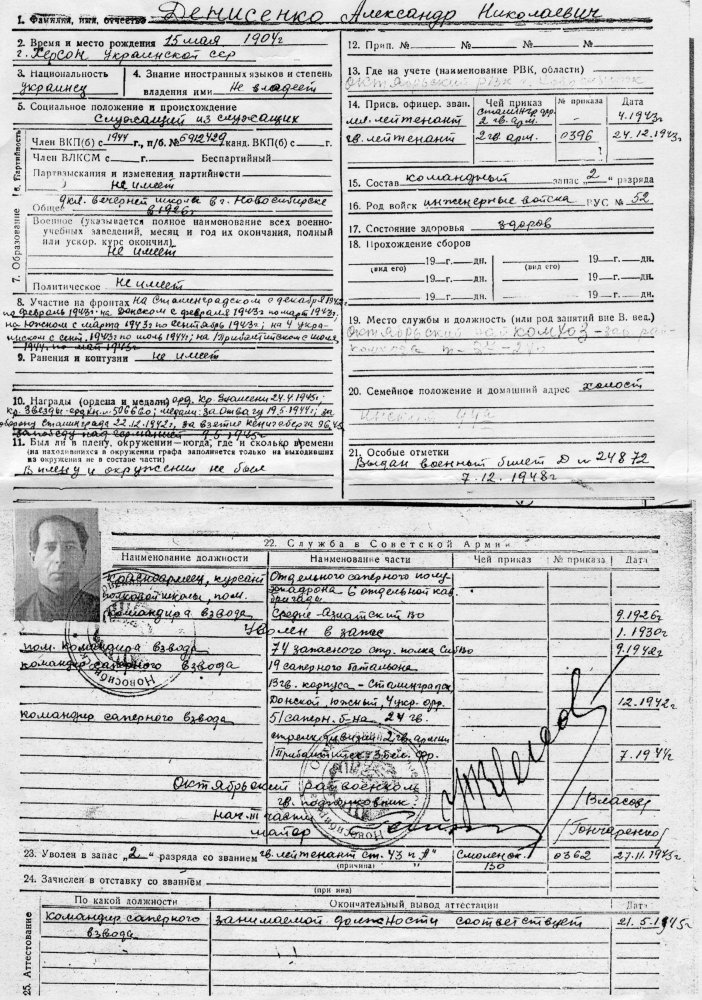 1. Фамилия, имя, отчество Денисенко Александр Николаевич
2. Время и место рождения 15 мая 1904г
г. Херсон Украинской ССР
3. Национальность украинец
4. Знание иностранных языков и степень владения ими Не владеет
5. Социальное положение и происхождение
Служащий из служащих
6. Партийность
Член ВКП(б) с 1944 г., п/б. № 6912429 канд. ВКП(б) с г.
Член ВЛКСМ с г. Беспартийный
Партвзыскания и изменения партийности
Не имеет
7. Образование
Общее 9 кл. вечерней школы в г. Новосибирске
в 1926г
Военное (указывается полное наименование всех военно-
учебных заведений, месяц и год их окончания, полный
или ускор. курс окончил)
Не имеет
Политическое Не имеет
8. Участие на фронтах На Сталинградском с декабря 1942г
по февраль 1943г на Донском с февраля 1943г по март 1943г
на Южном с марта 1943г по сентябрь 1943г; на 4 укра-
инском с сент. 1943г по июль 1944г; на 1 Прибалтийском с июля
1944г. по май 1945г
9. Ранения и контузии Не имеет
10. Награды (ордена и медали) орд. Кр. Знамени 24.4.1945г;
Кр. Звезды-орден № 506660; медали: За Отвагу 19.5.1944г; за
оборону Сталинграда 22.12.1942г, за взятие Кенигсберга
за победу над Германией 9.5.1945г
11. Был ли в плену, окружении—когда, где и сколько времени
(на находившихся в окружении графа заполняется только на выходивших
из окружения не в составе части)
В плену и окружении не был
12. Прип. № № № №
13. Где на учете (наименование РВК, области)
Октябрьский РВК г. Новосибирск
14. Присв. офицер. зван. Чей приказ № приказа Дата
мл. лейтенант Сталингр. фр. 2 гв. арм. - 4.1943г
гв. лейтенант 2 гв. арм. 0396 24.12.1943г
15. Состав командный запас „2“ разряда
16. Род войск инженерные войска РУС № 52
17. Состояние здоровья здоров
18. Прохождение сборов
19 —г. дн. 19 —г. дн.
(вид его) (вид его)
19 —г. дн. 19 —г. дн.
19 —г. дн. 19 —г. дн.
19. Место службы и должность (или род занятий вне В. вед.)
Октябрьский райкомхоз - зав рай-
20. Семейное положение и домашний адрес холост
21. Особые отметки
Выдан военный билет Д № 24872
7.12.1948г
22. Служба в Советской Армии
Наименование должности Наименование части Чей приказ № приказа Дата
Красноармеец, курсант Отдельного саперного полу-
полковой школы, пом. эскадрона 6 отдельной кав.
бригады
командира взвода Средне-Азиатский ВО 9.1926г
Уволен в запас 1.1930г
пом. командира взвода 74 запасного стр. полка СибВО 9.1942г
командир саперного взвода 19 саперного батальона
13 гв. корпуса - Сталинград,
Донской, Южный, 4 укр. фр. 12.1942г
командир саперного взвода 51 саперн. б-на 24 гв.
стрелк. дивизии 2 гв. армии
1 Прибалтийск - 3 Бел. фр. 7.1944г
Октябрьский райвоенком
гв. подполковник /Власов/
Нач. III части
майор /Гончаренко/
23. Уволен в запас „2“ разряда со званием гв. лейтенант ст. 43 п. „А“ Смоленск. ВО 0362 27.11.1945г
(причина)
24. Зачислен в отставку со званием
25. Аттестование
По какой должности Окончательный вывод аттестации Дата
командир саперного занимаемой должности соответствует 21.5.1945г
взвода